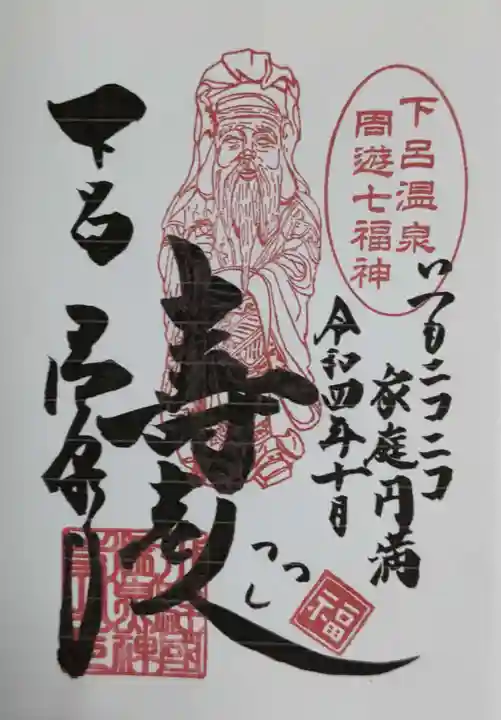 下呂温泉
周遊七福神
いつもニコニコ
家庭円満
令和四年十月
寿老人
下呂温泉
福